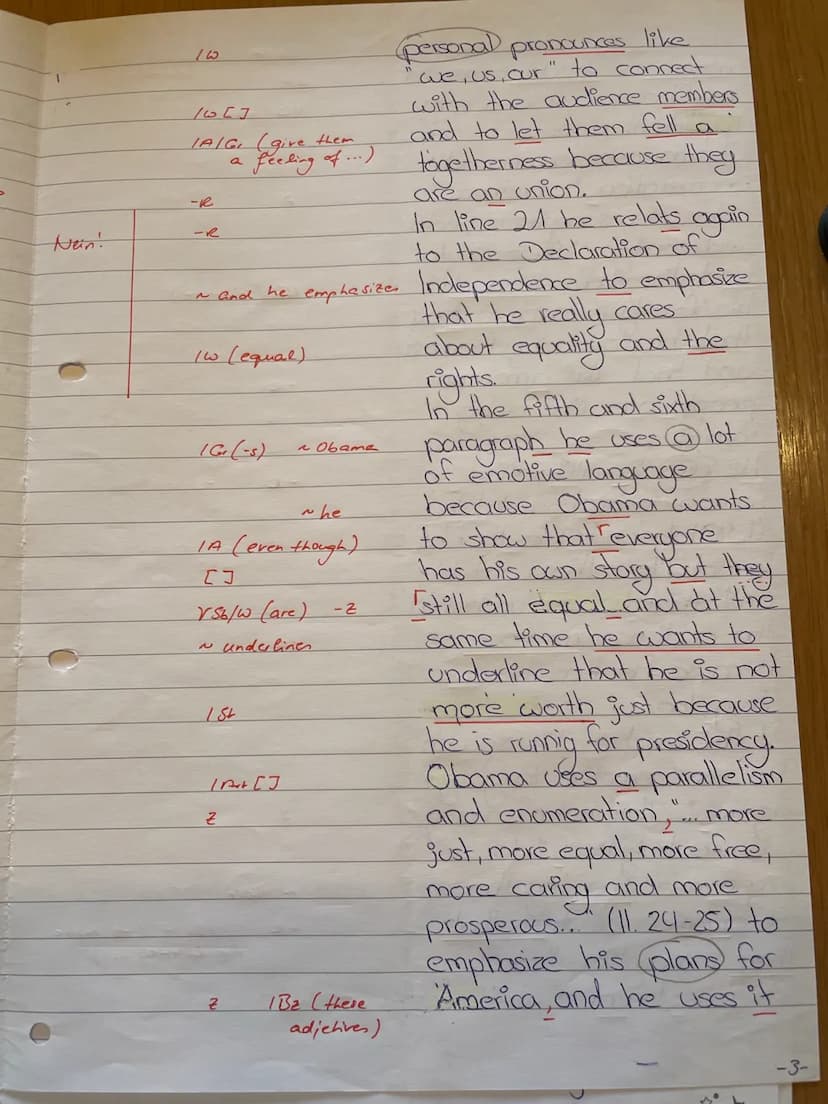 IW personal pronounces like
"we, us, our" to connect
IW [] with the audience members
IA/Gr (give them and to let them fell a
a feeling of ...) togetherness because they
are an union.
-R In line 21 he relats again
Nein! -R to the Declaration of
~ and he emphasizes Independence to emphasize
that he really cares
IW (equal) about equality and the
rights.
In the fifth and sixth
IGr(-s) ~ Obama paragraph he uses a lot
of emotive language
~ he because Obama wants
IA (even though) to show that everyone
[] has his own story but they
√Sb/W (are) -Z still all equal and at the
~ underlines same time he wants to
underline that he is not
ISt more worth just because
he is runnig for presidency.
IArt [] Obama uses a parallelism
Z and enumeration, "... more
just, more equal, more free,
more caring and more
prosperous..." (ll. 24-25) to
emphasize his plans for
Z IBz (these America, and he uses it
adjectives)
-3-